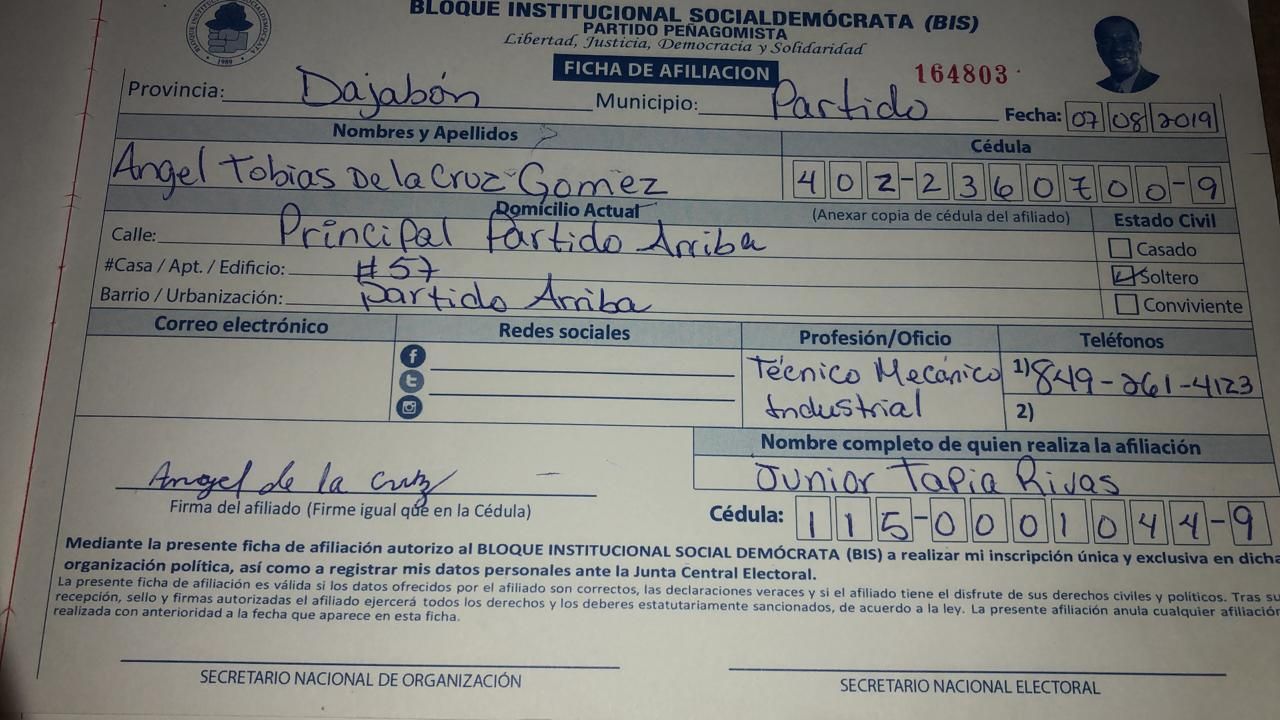 BLOQUE INSTITUCIONAL SOCIALDEMÓCRATA (BIS)
PARTIDO PEÑAGOMISTA
Libertad, Justicia, Democracia y Solidaridad
FICHA DE AFILIACION
164803
Provincia: Dajabón Municipio: Partido Fecha: 07 08 2019
Nombres y Apellidos Cédula
Angel Tobias De la Cruz Gomez 402-2360700-9
Domicilio Actual (Anexar copia de cédula del afiliado) Estado Civil
Calle: Principal Partido Arriba
Casado
#Casa / Apt. / Edificio: #57
Soltero
Barrio / Urbanización: Partido Arriba
Conviviente
Correo electrónico Redes sociales Profesión/Oficio Teléfonos
Técnico Mecánico 1) 849-261-4123
Industrial 2)
Nombre completo de quien realiza la afiliación
Angel de la Cruz Junior Tapia Rivas
Firma del afiliado (Firme igual que en la Cédula) Cédula: 115-0001044-9
Mediante la presente ficha de afiliación autorizo al BLOQUE INSTITUCIONAL SOCIAL DEMÓCRATA (BIS) a realizar mi inscripción única y exclusiva en dicha
organización política, así como a registrar mis datos personales ante la Junta Central Electoral.
La presente ficha de afiliación es válida si los datos ofrecidos por el afiliado son correctos, las declaraciones veraces y si el afiliado tiene el disfrute de sus derechos civiles y políticos. Tras su
recepción, sello y firmas autorizadas el afiliado ejercerá todos los derechos y los deberes estatutariamente sancionados, de acuerdo a la ley. La presente afiliación anula cualquier afiliación
realizada con anterioridad a la fecha que aparece en esta ficha.
SECRETARIO NACIONAL DE ORGANIZACIÓN SECRETARIO NACIONAL ELECTORAL